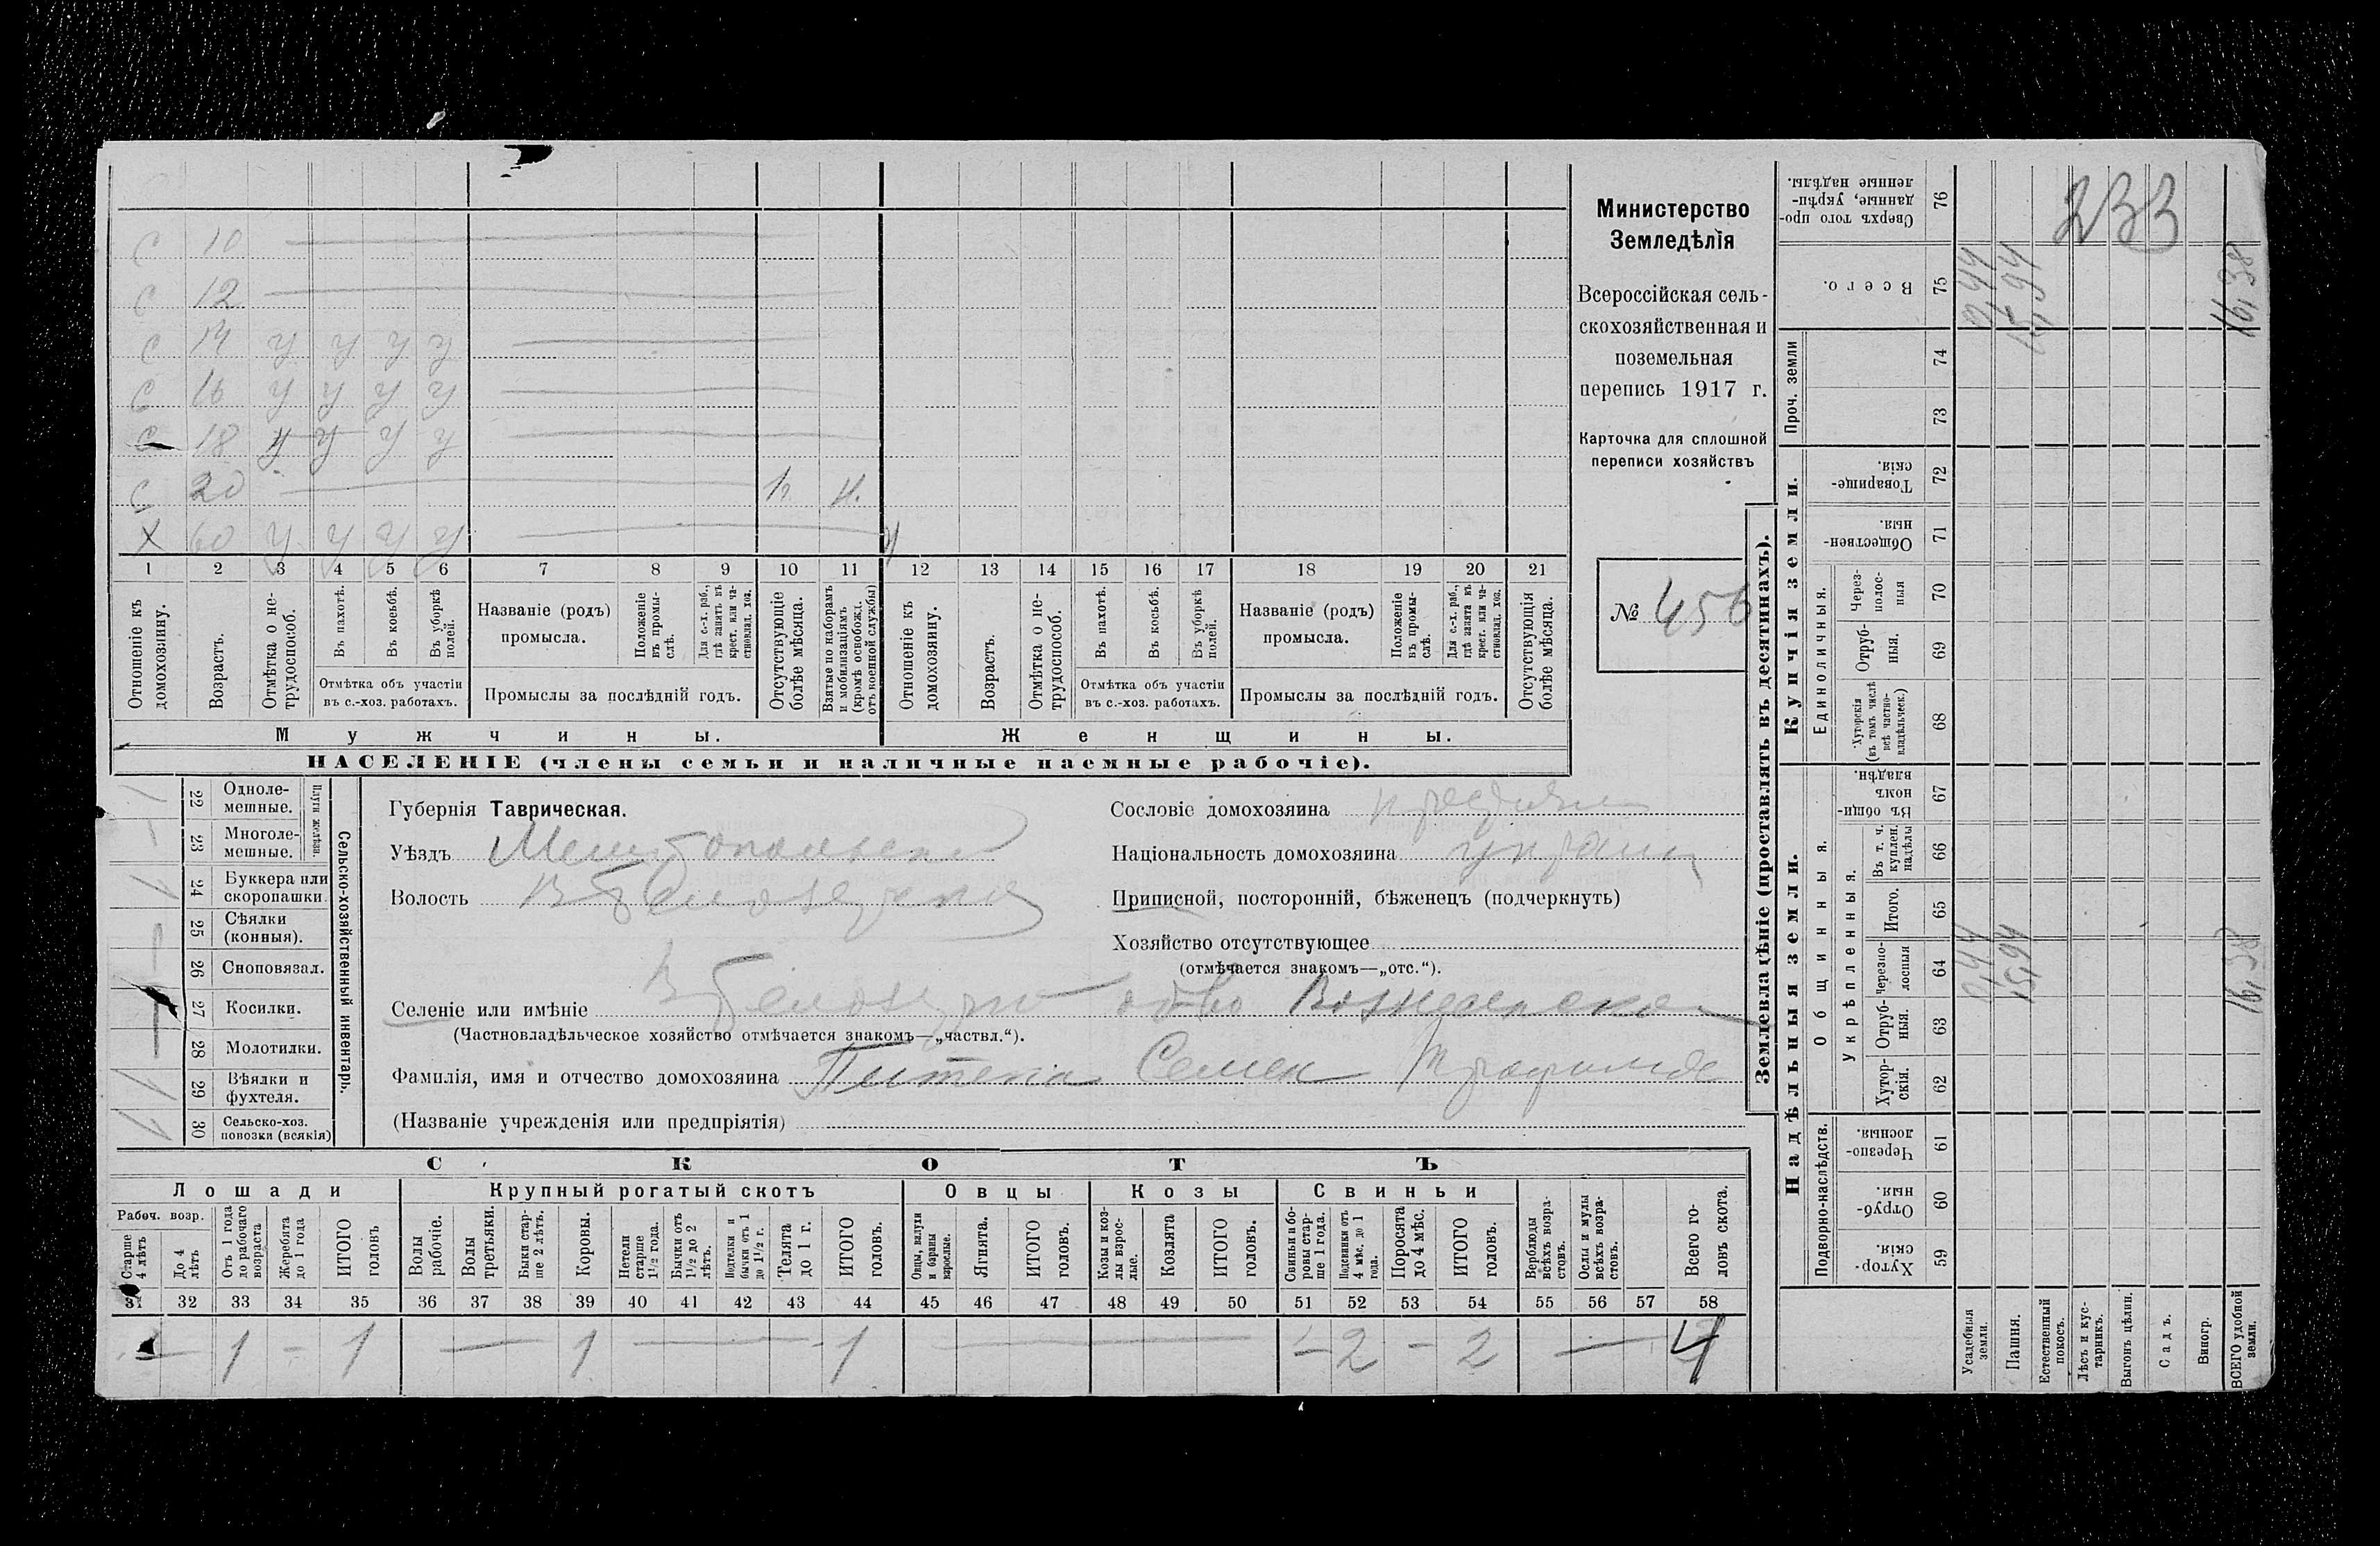 С 10
С 12
С 14 У У У У
С 16 У У У У
С 18 У У У У
С 20
Х 60 У У У У
1 2 3 4 5 6 7 8 9 10 11 12 13 14 15 16 17 18 19 20 21
Отношеніе къ домохозяину.
Возрастъ.
Отмѣтка о не-
трудоспособ.
Въ пахотѣ.
Въ косьбѣ.
Въ уборкѣ полей.
Отмѣтка объ участіи
въ с.-хоз. работахъ.
Названіе (родъ)
промысла.
Положеніе
въ промы-
слѣ.
Для с.-х. раб.,
гдѣ занятъ въ
крест. или ча-
стновлад. хоз.
Промыслы за послѣдній годъ.
Отсутствующіе
болѣе мѣсяца.
Взятые по наборамъ
и мобилизаціямъ
(кромѣ освобожд.
отъ военной службы)
Отношеніе къ
домохозяину.
Возрастъ.
Отмѣтка о не-
трудоспособ.
Въ пахотѣ.
Въ косьбѣ.
Въ уборкѣ
полей.
Отмѣтка объ участіи
въ с.-хоз. работахъ.
Названіе (родъ)
промысла.
Положеніе
въ промы-
слѣ.
Для с.-х. раб.,
гдѣ занята въ
крест. или ча-
стновлад. хоз.
Промыслы за послѣдній годъ.
Отсутствующія
болѣе мѣсяца.
Мужчины.
Женщины.
НАСЕЛЕНІЕ (члены семьи и наличные наемные рабочіе).
Министерство
Земледѣлія
Всероссійская сель-
скохозяйственная и
поземельная
перепись 1917 г.
Карточка для сплошной
переписи хозяйствъ
№ 456
22 Одноле-
мешные.
23 Многоле-
мешные.
Плуги желѣзн.
24 Буккера или
скоропашки.
25 Сѣялки
(конныя).
26 Сноповязал.
27 Косилки.
28 Молотилки.
29 Вѣялки и
фухтеля.
30 Сельско-хоз.
повозки (всякія)
Сельско-хозяйственный инвентарь.
Губернія Таврическая.
Уѣздъ Мелитопольский
Волость
Селеніе или имѣніе
(Частновладѣльческое хозяйство отмѣчается знакомъ—„частвл.“).
Фамилія, имя и отчество домохозяина Семен
(Названіе учрежденія или предпріятія)
Сословіе домохозяина
Національность домохозяина
Приписной, посторонній, бѣженецъ (подчеркнуть)
Хозяйство отсутствующее
(отмѣчается знакомъ—„отс.“).
СКОТЪ
Лошади
Крупный рогатый скотъ
Овцы
Козы
Свиньи
Рабоч. возр.
Старше
4 лѣтъ
До 4
лѣтъ
Отъ 1 года
до рабочаго
возраста
Жеребята
до 1 года
ИТОГО
головъ
Волы
рабочіе.
Волы
третьяки.
Быки стар-
ше 2 лѣтъ.
Коровы.
Нетели
старше
1½ года.
Бычки отъ
1½ до 2
лѣтъ.
Подтелки и
бычки отъ 1
до 1½ г.
Телята
до 1 г.
ИТОГО
головъ.
Овцы, валухи
и бараны
взрослые.
Ягнята.
ИТОГО
головъ.
Козы и коз-
лы взрос-
лые.
Козлята
ИТОГО
головъ.
Свиньи и бо-
ровы стар-
ше 1 года.
Подсвинки отъ
4 мѣс. до 1
года.
Поросята
до 4 мѣс.
ИТОГО
головъ.
Верблюды
всѣхъ возра-
стовъ.
Ослы и мулы
всѣхъ возра-
стовъ.
Всего го-
ловъ скота.
31 32 33 34 35 36 37 38 39 40 41 42 43 44 45 46 47 48 49 50 51 52 53 54 55 56 57 58
— 1 — 1 — 1 — 1 — — 2 — 2 — 4
Землевладѣніе (проставлять въ десятинахъ).
Надѣльныя земли.
Купчія земли.
Проч. земли
Подворно-наслѣдств.
Общинныя.
Укрѣпленныя.
Единоличныя.
Хутор-
скія. 59
Отруб-
ныя. 60
Черезпо-
лосныя. 61
Хутор-
скія. 62
Отруб-
ныя. 63
Черезпо-
лосныя 64
Итого. 65
Въ т. ч.
куплен.
надѣлы 66
Въ общин-
номъ
владѣн. 67
Хуторскія
(въ томъ числѣ
всѣ частно-
владѣльческ.) 68
Отруб-
ныя. 69
Через-
полос-
ныя 70
Обществен-
ныя. 71
Товарище-
скія. 72
73
74
Всего. 75
Сверхъ того про-
данные, укрѣп-
ленные надѣлы. 76
Усадебныя
земли. 0,44 0,44
Пашня. 15,94 15,94
Естественный
покосъ.
Лѣсъ и кус-
тарникъ.
Выгонъ цѣлин.
Садъ.
Виногр.
ВСЕГО удобной
земли. 16,38 16,38
233